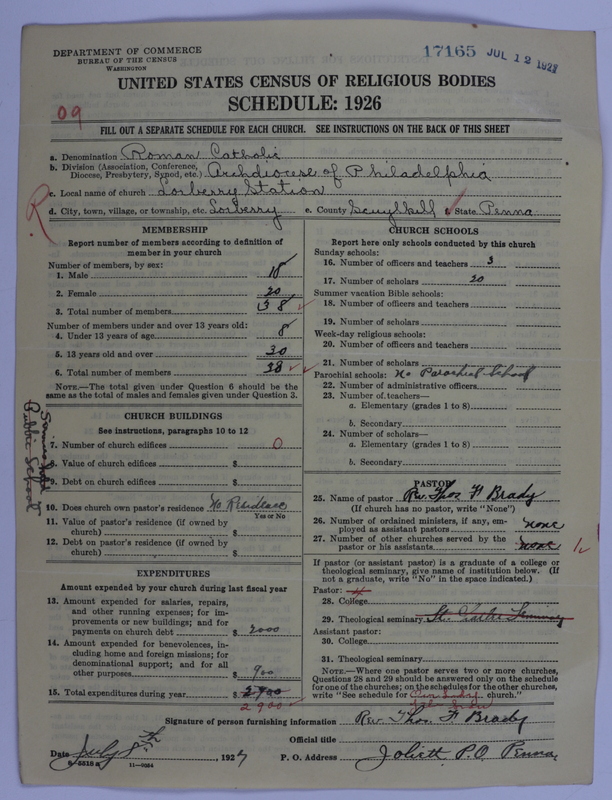 DEPARTMENT OF COMMERCE
BUREAU OF THE CENSUS
WASHINGTON
17165 JUL 12 1927
UNITED STATES CENSUS OF RELIGIOUS BODIES
SCHEDULE: 1926
09
FILL OUT A SEPARATE SCHEDULE FOR EACH CHURCH. SEE INSTRUCTIONS ON THE BACK OF THIS SHEET
a. Denomination Roman Catholic
b. Division (Association, Conference, Diocese, Presbytery, Synod, etc.) Archdiocese of Philadelphia
c. Local name of church Lorberry Station
R
d. City, town, village, or township, etc. Lorberry e. County Scuylkill f. State Penna
MEMBERSHIP
Report number of members according to definition of
member in your church
Number of members, by sex:
1. Male 18
2. Female 20
3. Total number of members 38
Number of members under and over 13 years old:
4. Under 13 years of age 8
5. 13 years old and over 30
6. Total number of members 38
NOTE.—The total given under Question 6 should be
same as the total of males and females given under Question 3.
CHURCH BUILDINGS
See instructions, paragraphs 10 to 12
7. Number of church edifices 0
8. Value of church edifices $
9. Debt on church edifices $
Public School
10. Does church own pastor's residence No Residence
Yes or No
11. Value of pastor's residence (if owned by
church) $
12. Debt on pastor's residence (if owned by
church) $
EXPENDITURES
Amount expended by your church during last fiscal year
13. Amount expended for salaries, repairs,
and other running expenses; for im-
provements or new buildings; and for
payments on church debt $ 2000
14. Amount expended for benevolences, in-
cluding home and foreign missions; for
denominational support; and for all
other purposes 900
15. Total expenditures during year $ 2900
2900
CHURCH SCHOOLS
Report here only schools conducted by this church
Sunday schools:
16. Number of officers and teachers 3
17. Number of scholars 20
Summer vacation Bible schools:
18. Number of officers and teachers
19. Number of scholars
Week-day religious schools:
20. Number of officers and teachers
21. Number of scholars
Parochial schools: No Parochial School
22. Number of administrative officers
23. Number of teachers—
a. Elementary (grades 1 to 8)
b. Secondary
24. Number of scholars—
a. Elementary (grades 1 to 8)
b. Secondary
PASTOR
25. Name of pastor Rev. Thos F Brady
(If church has no pastor, write "None")
26. Number of ordained ministers, if any, em-
ployed as assistant pastors none
27. Number of other churches served by the
pastor or his assistants none 1
If pastor (or assistant pastor) is a graduate of a college or
theological seminary, give name of institution below. (If
not a graduate, write "No" in the space indicated.)
Pastor:
28. College
29. Theological seminary St. Seminary
Assistant pastor:
30. College
31. Theological seminary
NOTE.—Where one pastor serves two or more churches,
Questions 28 and 29 should be answered only on the schedule
for one of the churches; on the schedules for the other churches,
write "See schedule for Our Lady church."
Signature of person furnishing information Rev. Thos. F Brady
Official title
Date July 8th, 1927 P. O. Address Joliett P.O. Penna
8-5518a 11-9084